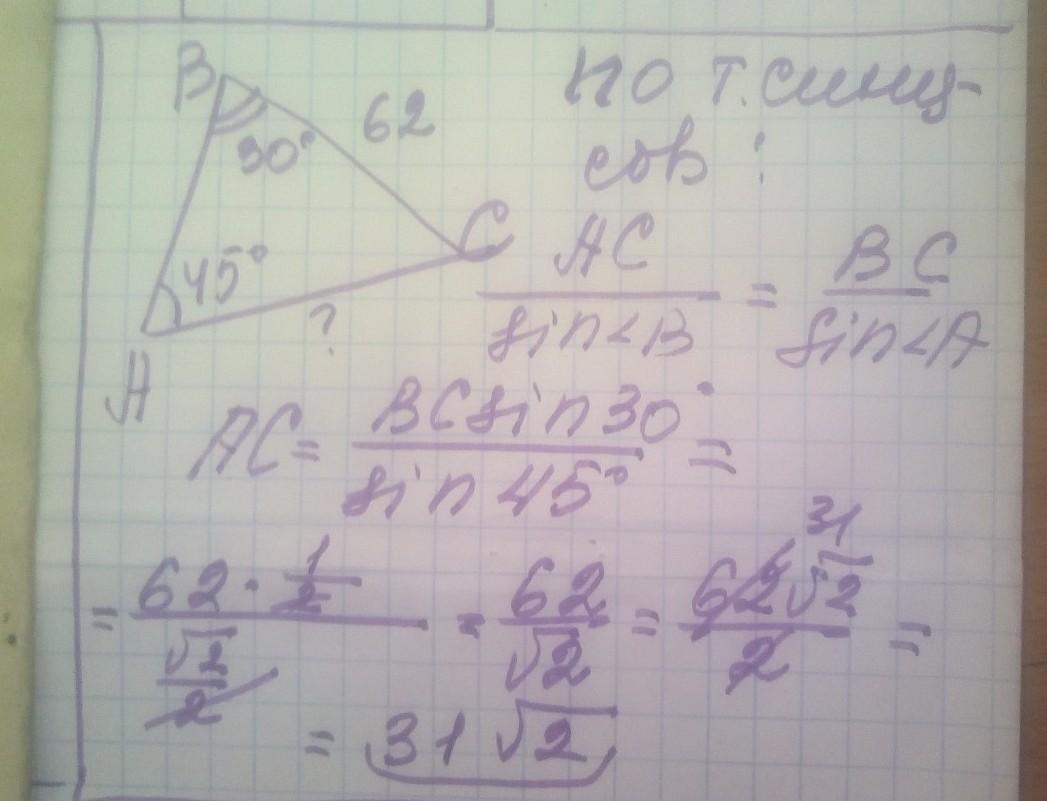 B
30°
62
45°
C
?
A
по т.синусов:
AC / sin∠B = BC / sin∠A
AC = BC sin30° / sin45° =
= 62 · 1/2 / √2/2 = 62/√2 = 62√2/2 =
31
= 31√2